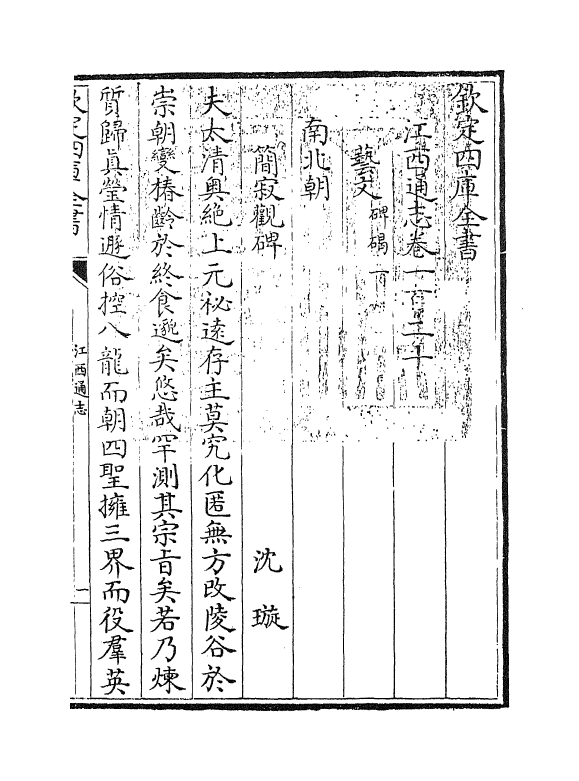 欽定四庫全書
江西通志卷一百二十
藝文 碑碣
南北朝
簡寂觀碑 沈璇
夫太清奥絶上元祕逺存主莫究化匿無方改陵谷於
崇朝變椿齡於終食邈矣悠哉罕測其宗旨矣若乃煉
質歸眞瑩情遯俗控八龍而朝四聖擁三界而役羣英
欽定四庫全書
江西通志
一